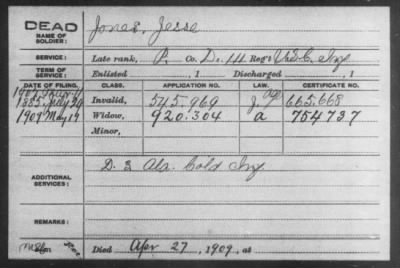 DEAD
NAME OF SOLDIER: Jones, Jesse
SERVICE: Late rank, P. Co. D. 111 Reg't U.S.C. Inf
TERM OF SERVICE: Enlisted , 1 Discharged , 1
DATE OF FILING. CLASS. APPLICATION NO. LAW. CERTIFICATE NO.
1885, July 20 Invalid, 545.969 665.668
1909 May 19 Widow, 920.304 a 754737
Minor,
ADDITIONAL SERVICES: D. 3 Ala. Cold Inf
REMARKS:
Died Apr 27, 1909, at